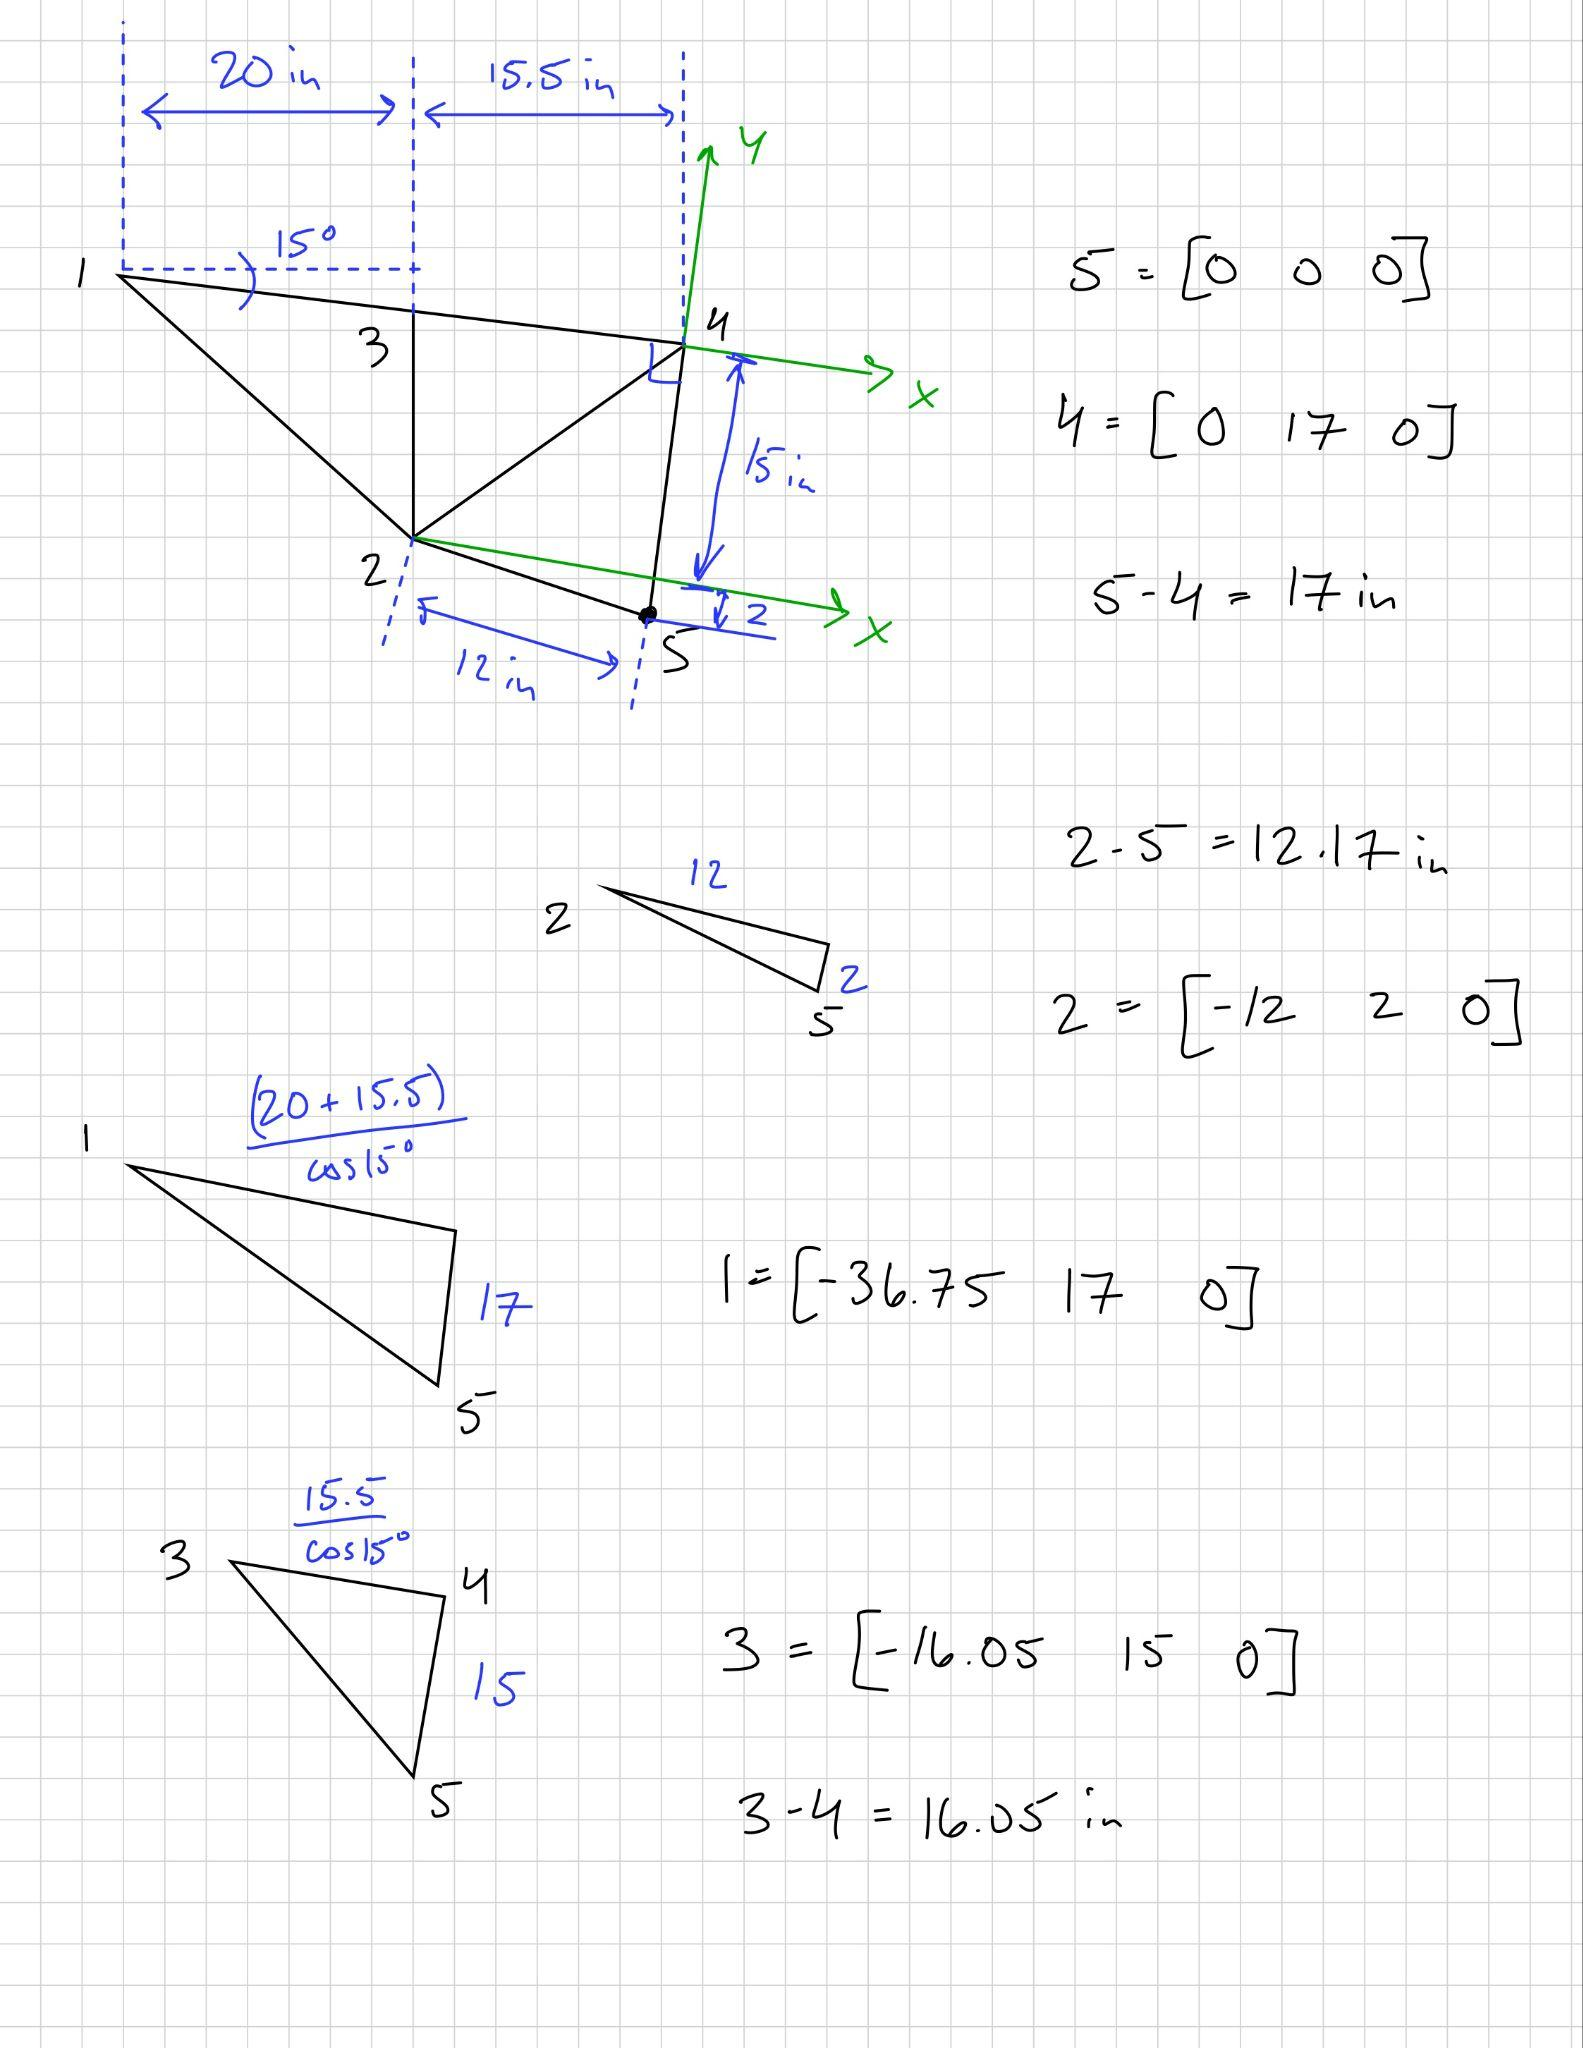 20 in
15.5 in
y
15°
1
3
4
x
15 in
2
2
x
5
12 in
5 = [0 0 0]
4 = [0 17 0]
5-4 = 17 in
2-5 = 12.17 in
12
2
2
5
2 = [-12 2 0]
(20 + 15.5)
cos15°
1
17
5
1 = [-36.75 17 0]
15.5
cos15°
3
4
15
5
3 = [-16.05 15 0]
3-4 = 16.05 in